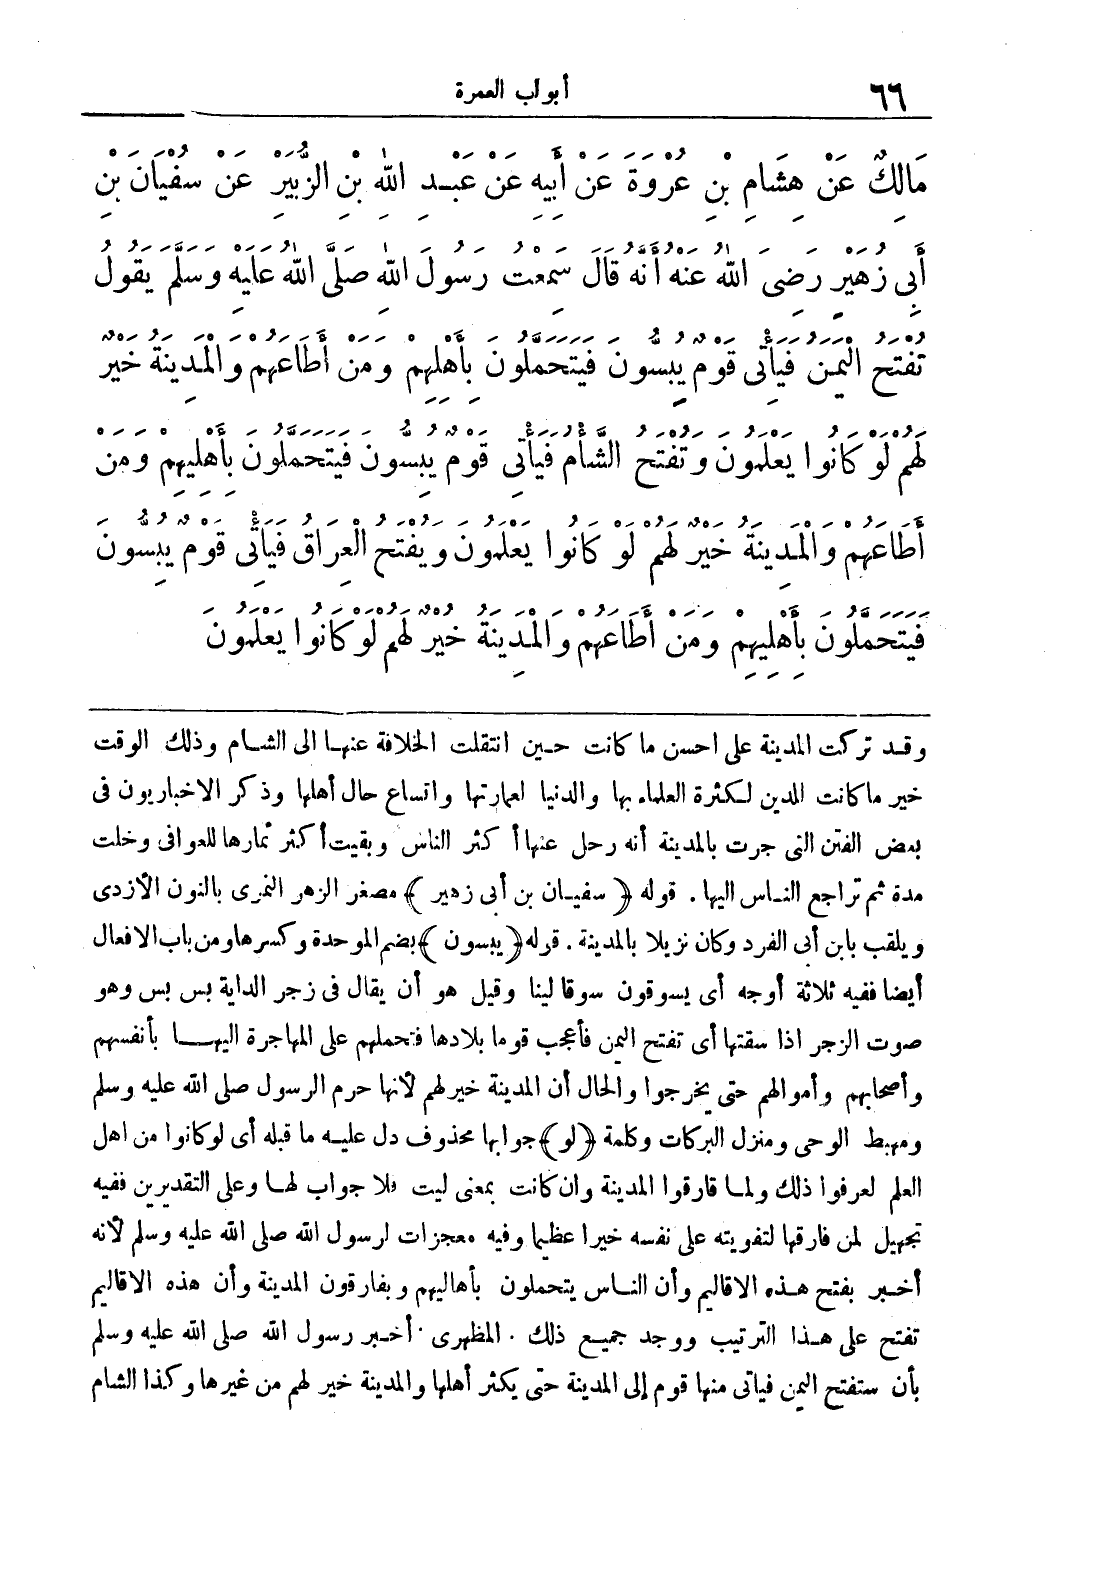 ٦٦ أبواب العمرة
مَالِكٌ عَنْ هِشَامِ بْنِ عُرْوَةَ عَنْ أَبِيهِ عَنْ عَبْدِ اللهِ بْنِ الزُّبَيْرِ عَنْ سُفْيَانَ بْنِ
أَبِي زُهَيْرٍ رَضِيَ اللهُ عَنْهُ أَنَّهُ قَالَ سَمِعْتُ رَسُولَ اللهِ صَلَّى اللهُ عَلَيْهِ وَسَلَّمَ يَقُولُ
تُفْتَحُ الْيَمَنُ فَيَأْتِي قَوْمٌ يُبِسُّونَ فَيَتَحَمَّلُونَ بِأَهْلِهِمْ وَمَنْ أَطَاعَهُمْ وَالْمَدِينَةُ خَيْرٌ
لَهُمْ لَوْ كَانُوا يَعْلَمُونَ وَتُفْتَحُ الشَّأْمُ فَيَأْتِي قَوْمٌ يُبِسُّونَ فَيَتَحَمَّلُونَ بِأَهْلِيهِمْ وَمَنْ
أَطَاعَهُمْ وَالْمَدِينَةُ خَيْرٌ لَهُمْ لَوْ كَانُوا يَعْلَمُونَ وَيُفْتَحُ الْعِرَاقُ فَيَأْتِي قَوْمٌ يُبِسُّونَ
فَيَتَحَمَّلُونَ بِأَهْلِيهِمْ وَمَنْ أَطَاعَهُمْ وَالْمَدِينَةُ خَيْرٌ لَهُمْ لَوْ كَانُوا يَعْلَمُونَ
وقد تركت المدينة على احسن ما كانت حين انتقلت الخلافة عنها الى الشام وذلك الوقت
خير ماكانت للدين لكثرة العلماء بها والدنيا لعمارتها واتساع حال أهلها وذكر الاخباريون فى
بعض الفتن التى جرت بالمدينة أنه رحل عنها أكثر الناس وبقيت أكثر ثمارها للعوافى وخلت
مدة ثم تراجع الناس اليها . قوله ﴿سفيان بن أبى زهير﴾ مصغر الزهر النمرى بالنون الأزدى
ويلقب بابن أبى القرد وكان نزيلا بالمدينة . قوله ﴿يبسون﴾ بضم الموحدة وكسرها ومن باب الافعال
أيضا ففيه ثلاثة أوجه أى يسوقون سوقا لينا وقيل هو أن يقال فى زجر الداية بس بس وهو
صوت الزجر اذا سقتها أى تفتح اليمن فأعجب قوما بلادها فتحملهم على المهاجرة اليها بأنفسهم
وأصحابهم وأموالهم حتى يخرجوا والحال أن المدينة خيرلهم لأنها حرم الرسول صلى الله عليه وسلم
ومهبط الوحى ومنزل البركات وكلمة ﴿لو﴾ جوابها محذوف دل عليه ما قبله أى لوكانوا من اهل
العلم لعرفوا ذلك ولما فارقوا المدينة وان كانت بمعنى ليت فلا جواب لها وعلى التقديرين ففيه
تجهيل لمن فارقها لتفويته على نفسه خيرا عظيما وفيه معجزات لرسول الله صلى الله عليه وسلم لأنه
أخبر بفتح هذه الاقاليم وأن الناس يتحملون بأهاليهم ويفارقون المدينة وأن هذه الاقاليم
تفتح على هذا الترتيب ووجد جميع ذلك . المظهرى . أخبر رسول الله صلى الله عليه وسلم
بأن ستفتح اليمن فيأتى منها قوم إلى المدينة حتى يكثر أهلها والمدينة خير لهم من غيرها وكذا الشام